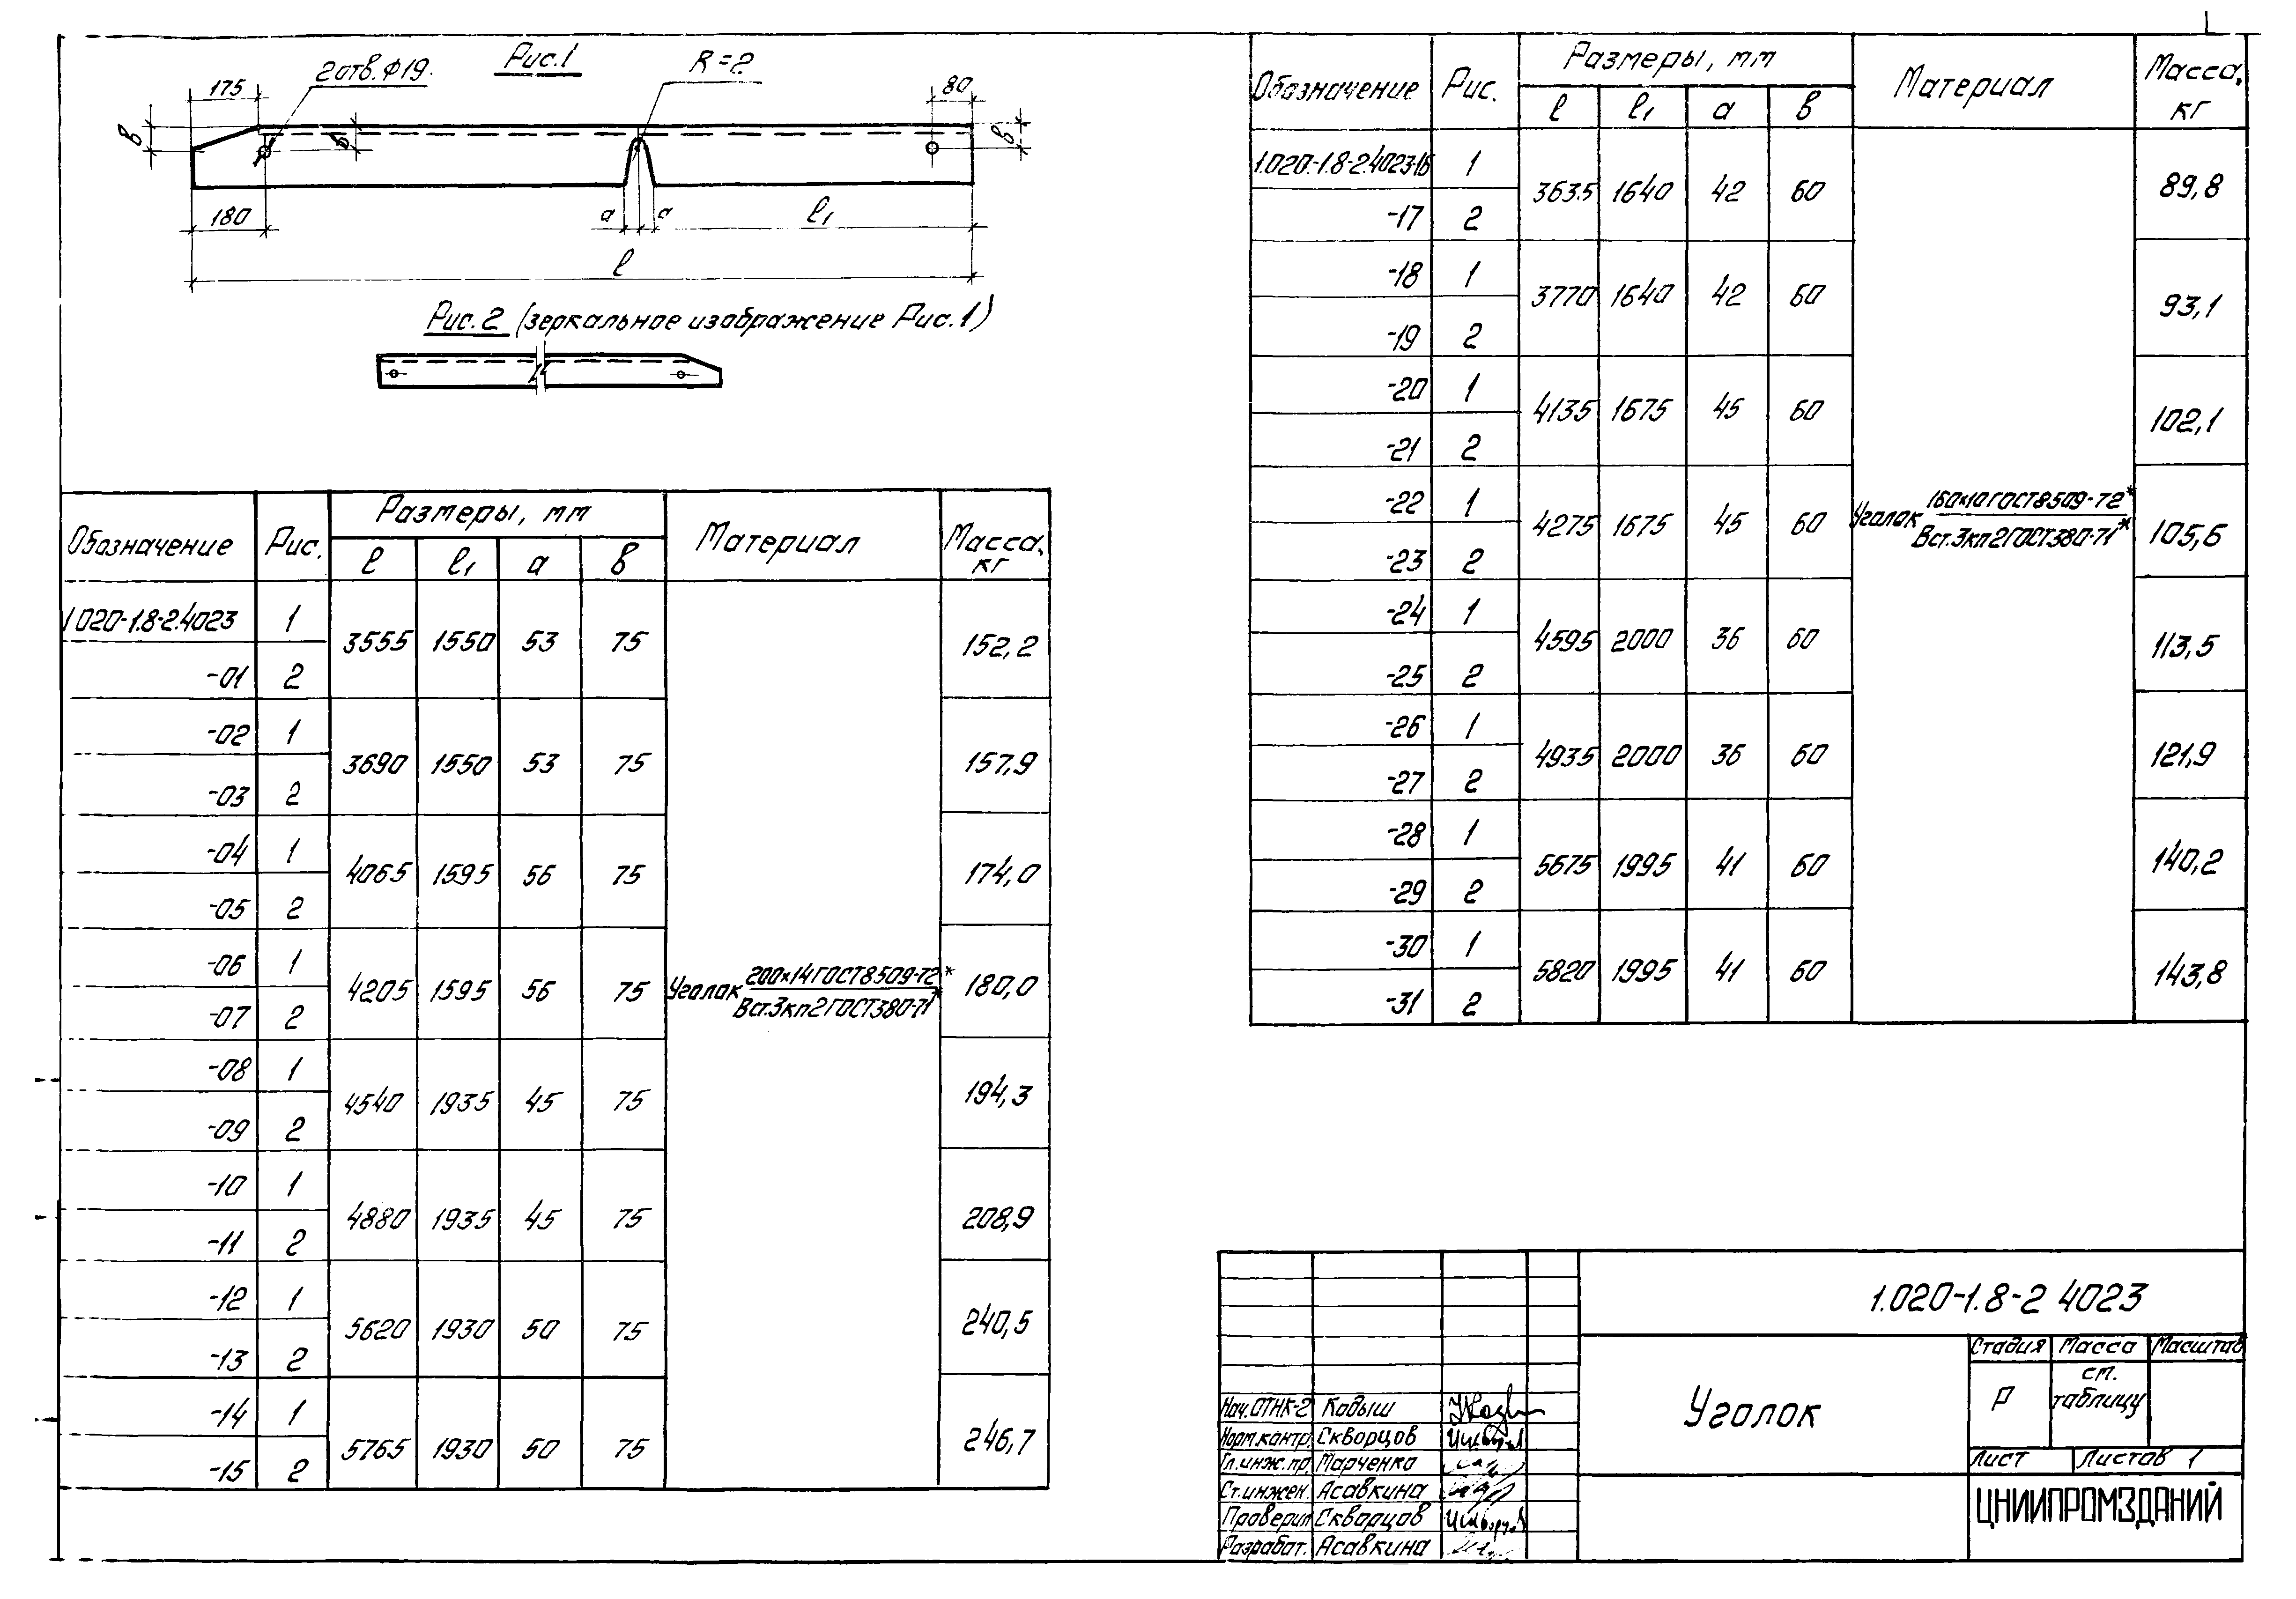 Рис.1
2отв.Ф19.
R=2
175
80
в
в
в
180
a
a
l₁
l
Рис.2 (зеркальное изображение Рис.1)
Обозначение Рис. Размеры, мм Материал Масса, кг
l l₁ a в
1.020-1.8-2.4023 1 3555 1550 53 75 152,2
-01 2
-02 1 3690 1550 53 75 157,9
-03 2
-04 1 4065 1595 56 75 174,0
-05 2
-06 1 4205 1595 56 75 180,0
Уголок 200х14 ГОСТ 8509-72*
Вст.3кп2 ГОСТ 380-71*
-07 2
-08 1 4540 1935 45 75 194,3
-09 2
-10 1 4880 1935 45 75 208,9
-11 2
-12 1 5620 1930 50 75 240,5
-13 2
-14 1 5765 1930 50 75 246,7
-15 2
Обозначение Рис. Размеры, мм Материал Масса, кг
l l₁ a в
1.020-1.8-2.4023-16 1 3635 1640 42 60 89,8
-17 2
-18 1 3770 1640 42 60 93,1
-19 2
-20 1 4135 1675 45 60 102,1
-21 2
-22 1 4275 1675 45 60 105,6
Уголок 160х10 ГОСТ 8509-72*
Вст.3кп2 ГОСТ 380-71*
-23 2
-24 1 4595 2000 36 60 113,5
-25 2
-26 1 4935 2000 36 60 121,9
-27 2
-28 1 5675 1995 41 60 140,2
-29 2
-30 1 5820 1995 41 60 143,8
-31 2
1.020-1.8-2 4023
Уголок
Стадия Масса Масштаб
Р см. таблицу
Лист Листов 1
ЦНИИПРОМЗДАНИЙ
Нач.ОТНК-2 Кодыш
Норм.контр. Скворцов
Гл.инж.пр. Марченко
Ст.инжен. Асавкина
Проверил Скворцов
Разработ. Асавкина